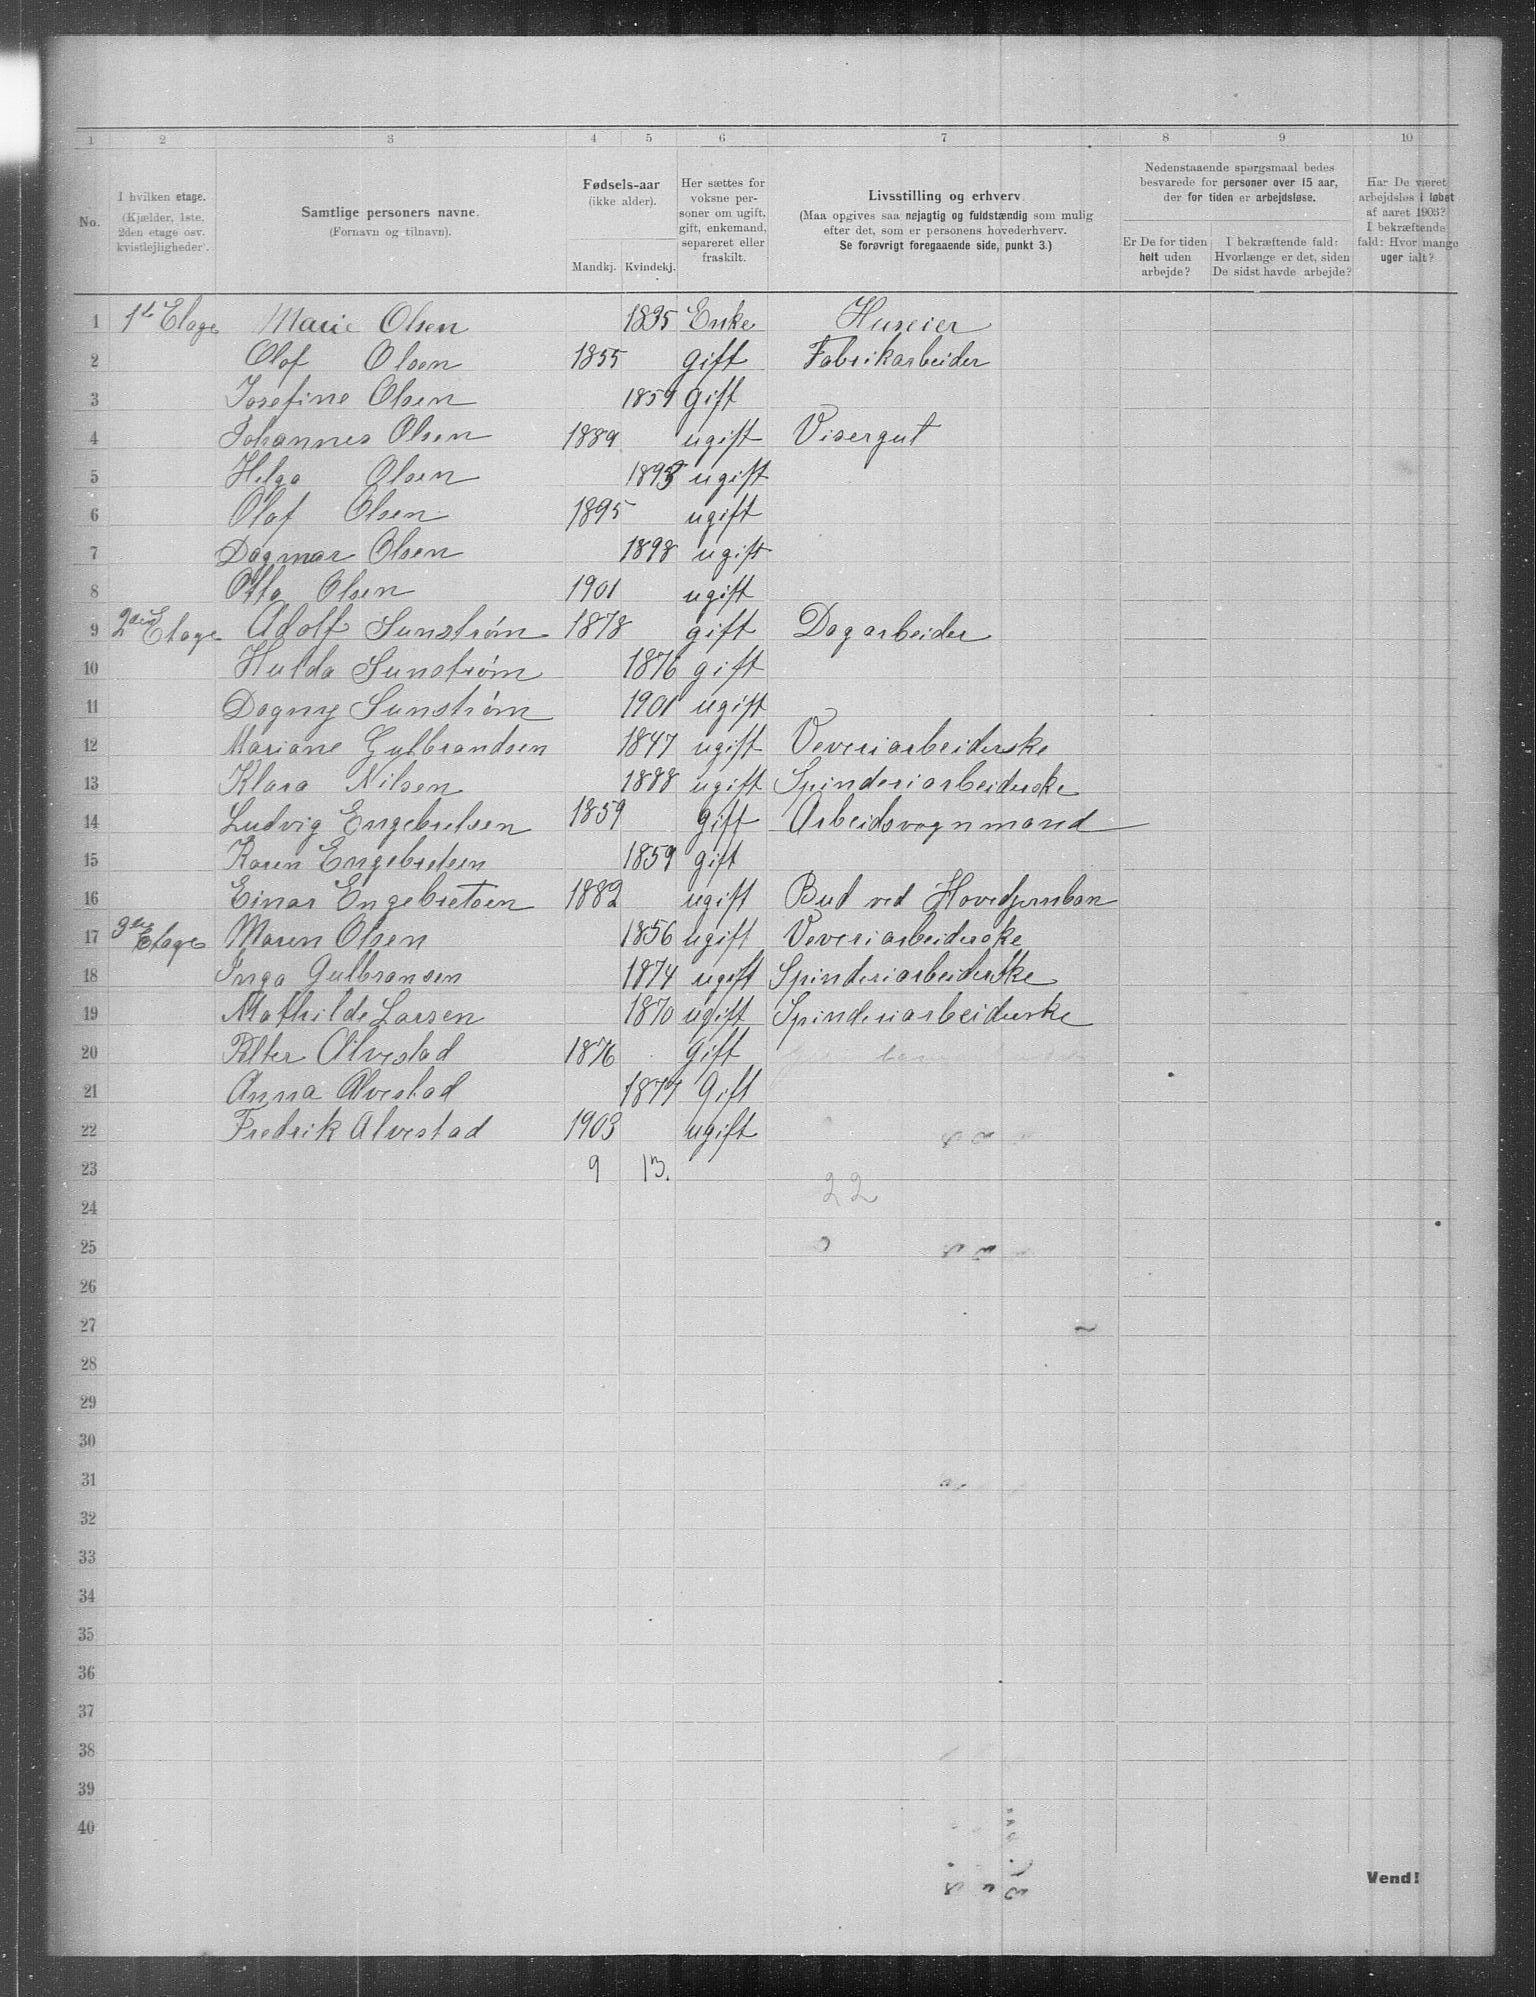 1 2 3 4 5 6 7 8 9 10
No.
I hvilken etage.
(Kjælder, 1ste, 2den etage osv. kvistlejligheder).
Samtlige personers navne.
(Fornavn og tilnavn).
Fødsels-aar
(ikke alder).
Mandkj. Kvindekj.
Her sættes for voksne personer om ugift, gift, enkemand, separeret eller fraskilt.
Livsstilling og erhverv.
(Maa opgives saa nøjagtig og fuldstændig som mulig
efter det, som er personens hovederhverv.
Se forøvrigt foregaaende side, punkt 3.)
Nedenstaaende spørgsmaal bedes
besvarede for personer over 15 aar,
der for tiden er arbejdsløse.
Er De for tiden
helt uden
arbejde?
I bekræftende fald:
Hvorlænge er det, siden
De sidst havde arbejde?
Har De været
arbejdsløs i løbet
af aaret 1903?
I bekræftende
fald: Hvor mange
uger ialt?
1 1ste Etage Marie Olsen 1835 Enke Huseier
2 Olaf Olsen 1855 gift Fabrikarbeider
3 Josefine Olsen 1859 gift
4 Johannes Olsen 1889 ugift Visergut
5 Helga Olsen 1893 ugift
6 Olaf Olsen 1895 ugift
7 Dagmar Olsen 1898 ugift
8 Otto Olsen 1901 ugift
9 2den Etage Adolf Sunstrøm 1878 gift Dagarbeider
10 Hulda Sunstrøm 1876 gift
11 Dagny Sunstrøm 1901 ugift
12 Mariane Gulbrandsen 1847 ugift Veveriarbeiderske
13 Klara Nilsen 1888 ugift Spinderiarbeiderske
14 Ludvig Engebretsen 1859 gift Arbeidsvognmand
15 Karen Engebretsen 1859 gift
16 Einar Engebretsen 1882 ugift Bud ved Hovedjernban
17 3die Etage Maren Olsen 1856 ugift Veveriarbeiderske
18 Inga Gulbransen 1874 ugift Spinderiarbeiderske
19 Mathilde Larsen 1870 ugift Spinderiarbeiderske
20 Peter Alvestad 1876 gift
21 Anna Alvestad 1877 Gift
22 Fredrik Alvestad 1903 ugift
23 9 13.
24 22
25
26
27
28
29
30
31
32
33
34
35
36
37
38
39
40
Vend!